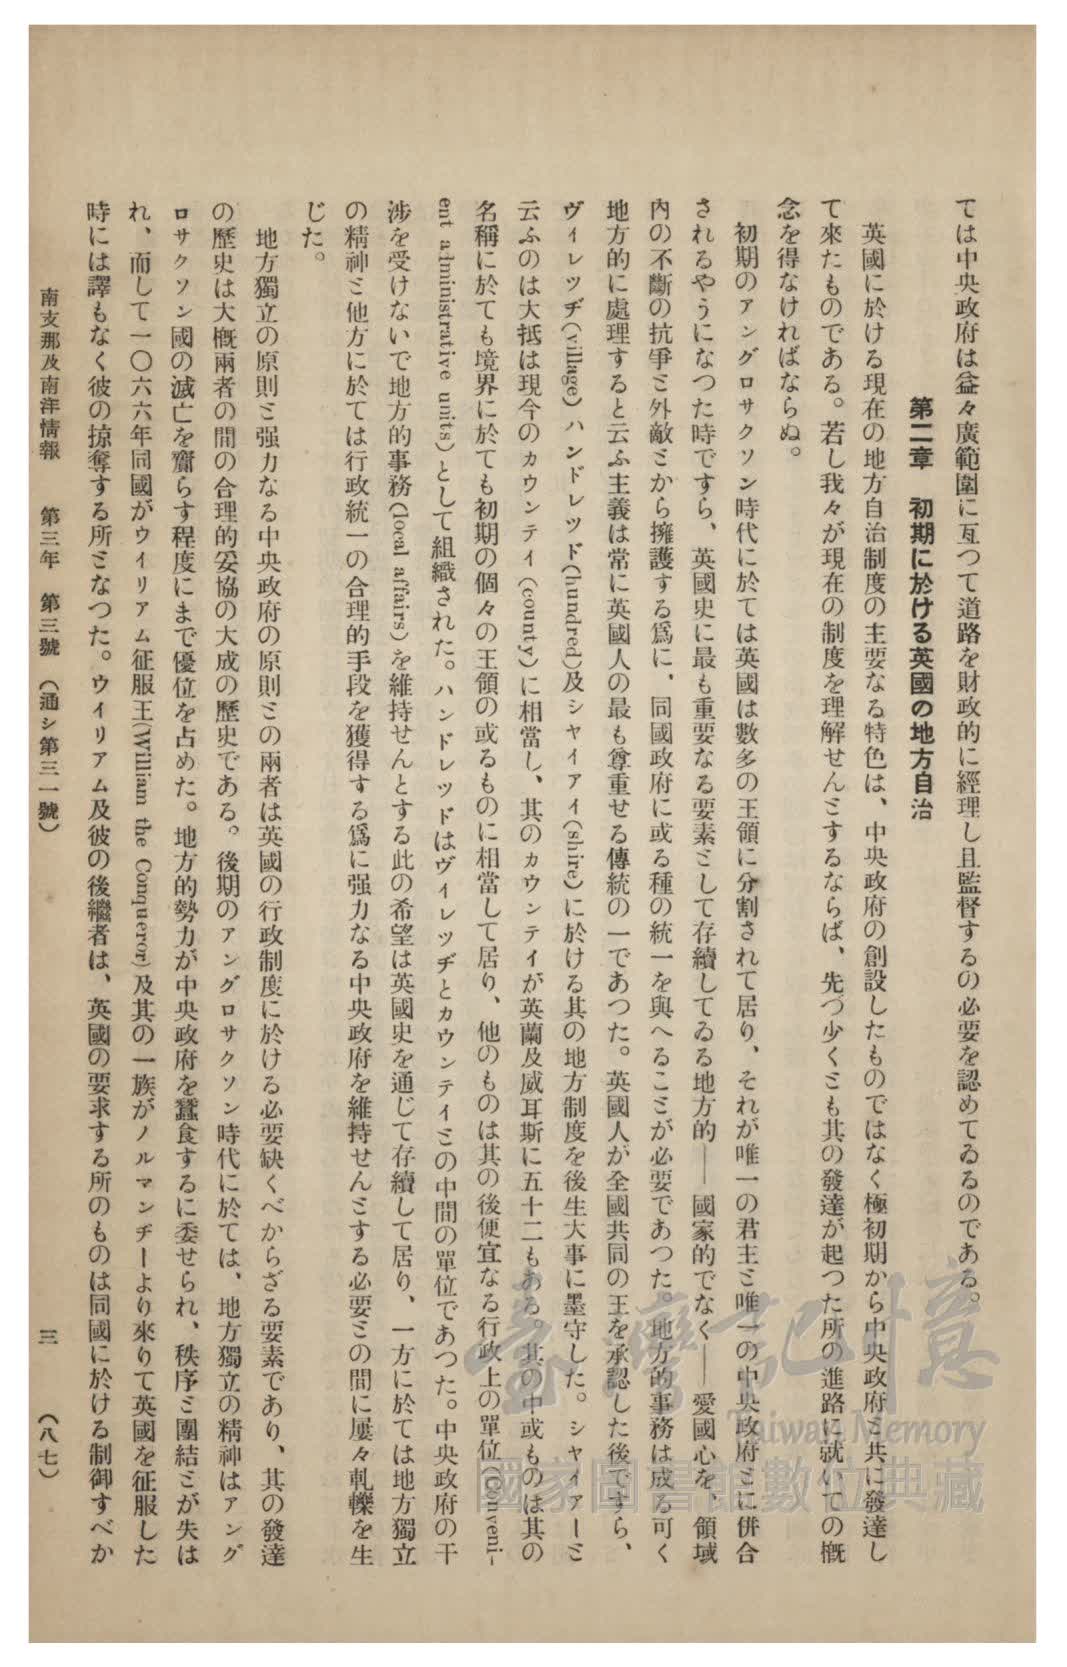 ては中央政府は益々廣範圍に亙つて道路を財政的に經理し且監督するの必要を認めてゐるのである。
第二章　初期に於ける英國の地方自治
英國に於ける現在の地方自治制度の主要なる特色は、中央政府の創設したものではなく極初期から中央政府ミ共に發達し
て來たものである。若し我々が現在の制度を理解せんミするならば、先づ少くミも其の發達が起つた所の進路に就いての概
念を得なければならぬ。
初期のアングロサクソン時代に於ては英國は數多の王領に分割されて居り、それが唯一の君主ミ唯一の中央政府ミに併合
されるやうになつた時ですら、英國史に最も重要なる要素ミして存續してゐる地方的――國家的でなく――愛國心を、領域
內の不斷の抗爭ミ外敵ミから擁護する爲に、同國政府に或る種の統一を與へるこミが必要であつた。地方的事務は成る可く
地方的に處理すると云ふ主義は常に英國人の最も尊重せる傳統の一であつた。英國人が全國共同の王を承認した後ですら、
ヴィレッヂ(village)ハンドレッド(hundred)及シャイアイ(shire)に於ける其の地方制度を後生大事に墨守した。シャイアーミ
云ふのは大抵は現今のカウンテイ(county)に相當し、其のカウンテイが英蘭及威耳斯に五十二もある。其の中或ものは其の
名稱に於ても境界に於ても初期の個々の王領の或るものに相當して居り、他のものは其の後便宜なる行政上の單位(Conveni-
ent administrative units)として組織された。ハンドレッドはヴィレッヂとカウンテイミの中間の單位であつた。中央政府の干
涉を受けないで地方的事務(local affairs)を維持せんとする此の希望は英國史を通じて存續して居り、一方に於ては地方獨立
の精神ミ他方に於ては行政統一の合理的手段を獲得する爲に强力なる中央政府を維持せんミする必要ミの間に屢々軋轢を生
じた。
地方獨立の原則ミ强力なる中央政府の原則ミの兩者は英國の行政制度に於ける必要缺くべからざる要素であり、其の發達
の歷史は大槪兩者の間の合理的妥協の大成の歷史である。後期のアングロサクソン時代に於ては、地方獨立の精神はアング
ロサクソン國の滅亡を齎らす程度にまで優位を占めた。地方的勢力が中央政府を蠶食するに委せられ、秩序ミ團結ミが失は
れ、而して一〇六六年同國がウイリアム征服王(William the Conqueror)及其の一族がノルマンヂーより來りて英國を征服した
時には譯もなく彼の掠奪する所ミなつた。ウイリアム及彼の後繼者は、英國の要求する所のものは同國に於ける制御すべか
南支那及南洋情報　第三年　第三號（通シ第三一號）　三　（八七）
臺灣記憶
Taiwan Memory
國家圖書館數位典藏